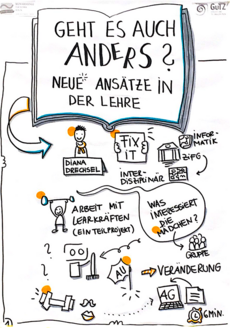 GEHT ES AUCH
ANDERS?
NEUE ANSÄTZE IN
DER LEHRE
DIANA
DRECHSEL
FIX
IT
INFOR-
MATIK
ZIFG
INTER-
DISZIPLINÄR
ARBEIT MIT
LEHRKRÄFTEN
(EIN TEILPROJEKT)
WAS
INTERESSIERT
DIE
MÄDCHEN?
GRUPPE
?
?
?
AU
VERÄNDERUNG
AG
6MIN.